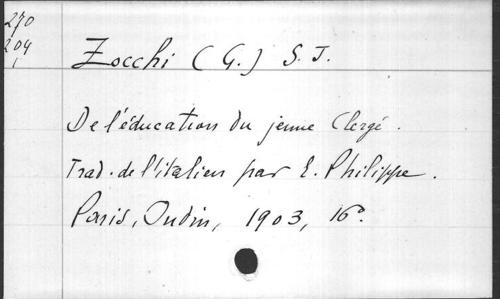 270
209
Zocchi (G.) S. J.
De l'éducation du jeune Clergé.
Trad. de l'italien par E. Philippe.
Paris, Oudin, 1903, 16º.